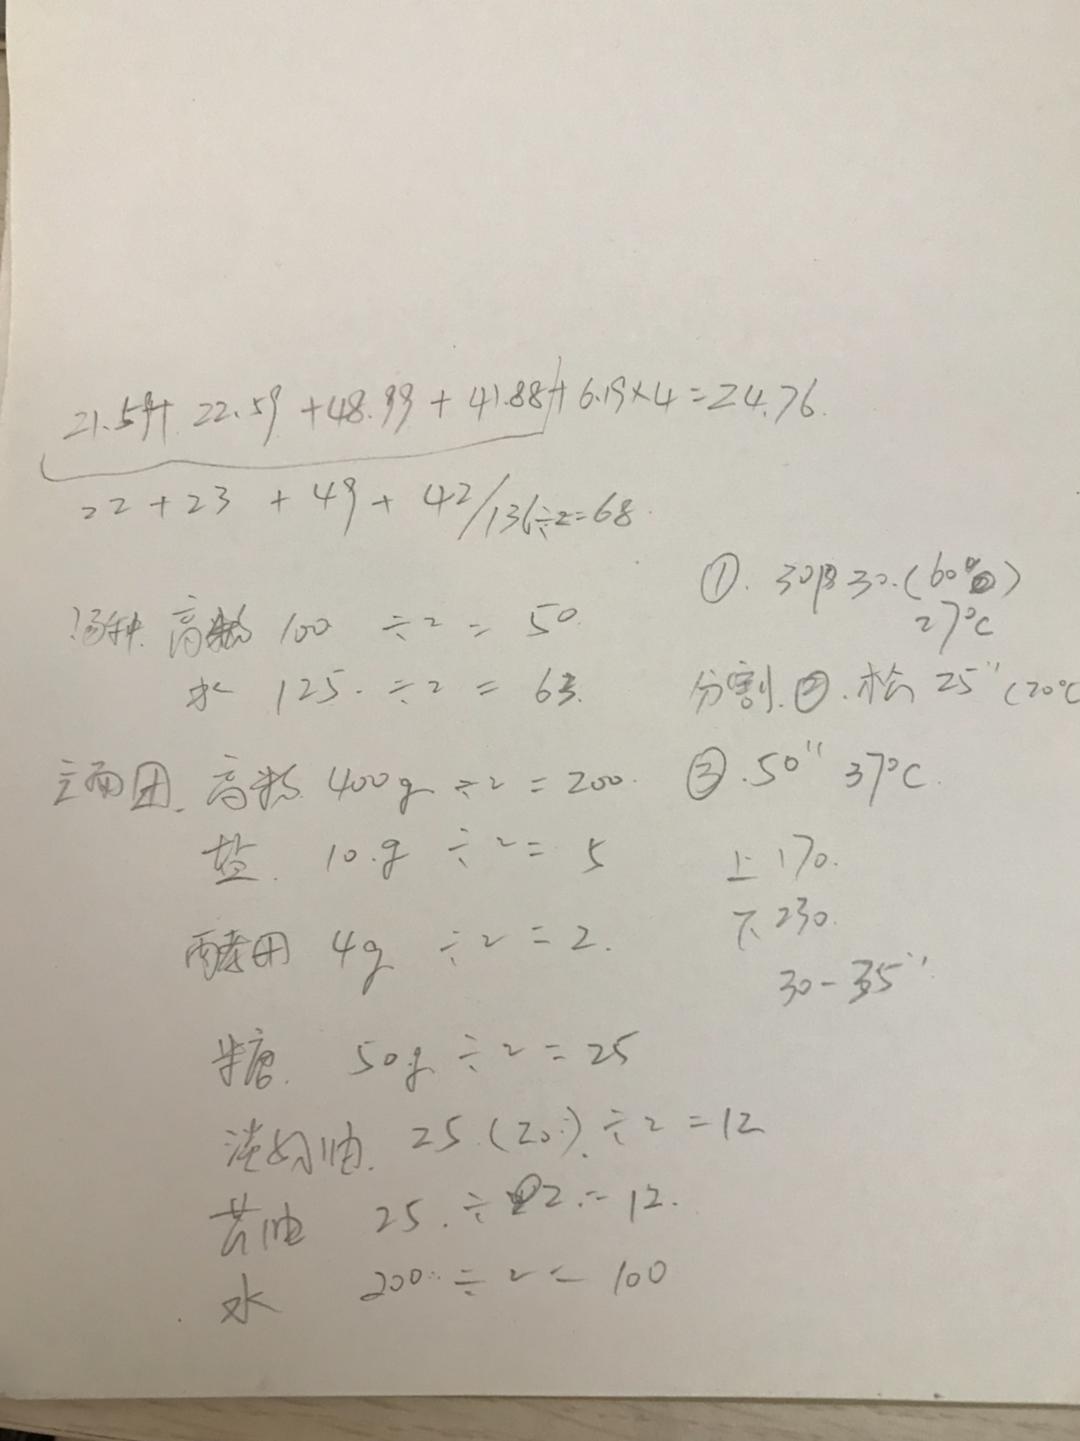 21.59+ 22.59 +48.99 + 41.88+ 6.19×4=24.76.
22+23 + 49 + 42/136÷2=68.
汤种. 高粉 100 ÷2 = 50.
水 125. ÷2 = 63.
主面团. 高粉 400g ÷2 = 200.
盐. 10.g ÷2= 5
酵母 4g ÷2=2.
糖. 50g ÷2=25
淡奶油. 25.(20.) ÷2=12
黄油 25. ÷2.=12.
水 200. ÷2= 100
①. 30 30.(60%)
27℃
分割.②.松 25" (20℃
③.50" 37℃.
上170.
下230.
30-35"